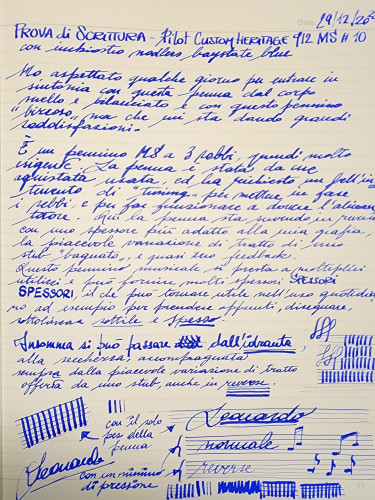 Date 29/12/20
PROVA di SCRITTURA - Pilot CUSTOM HERITAGE 912 MS # 10
con inchiostro noodlers baystate blue
Ho aspettato qualche giorno per entrare in
sintonia con questa penna dal corpo
snello e bilanciato e con questo pennino
"bizzoso", ma che mi sta dando grandi
soddisfazioni.
È un pennino MS a 3 rebbi, quindi molto
esigente. La penna è stata da me
acquistata usata, ed ha richiesto un bell'in
tervento di tuning per mettere in fase
i rebbi e per far funzionare a dovere l'alimen
tatore. Qui la penna sta
con uno spessore più adatto alla mia grafia,
la piacevole variazione di tratto di uno
stub "bagnato", e quasi zero feedback.
Questo pennino musicale si presta a molteplici
utilizzi e può fornire molti spessori SPESSORI
SPESSORI, il che può tornare utile nell'uso quotidia
no ad esempio per prendere appunti, disegnare,
sottolineare sottile e spesso.
Insomma si può passare dall'idrante,
alla secchezza accompagnata
sempre dalla piacevole variazione di tratto
offerta da uno stub, anche in reverse.
con il solo
peso della
penna
Leonardo
normale
reverse
Leonardo
con un minimo
di pressione